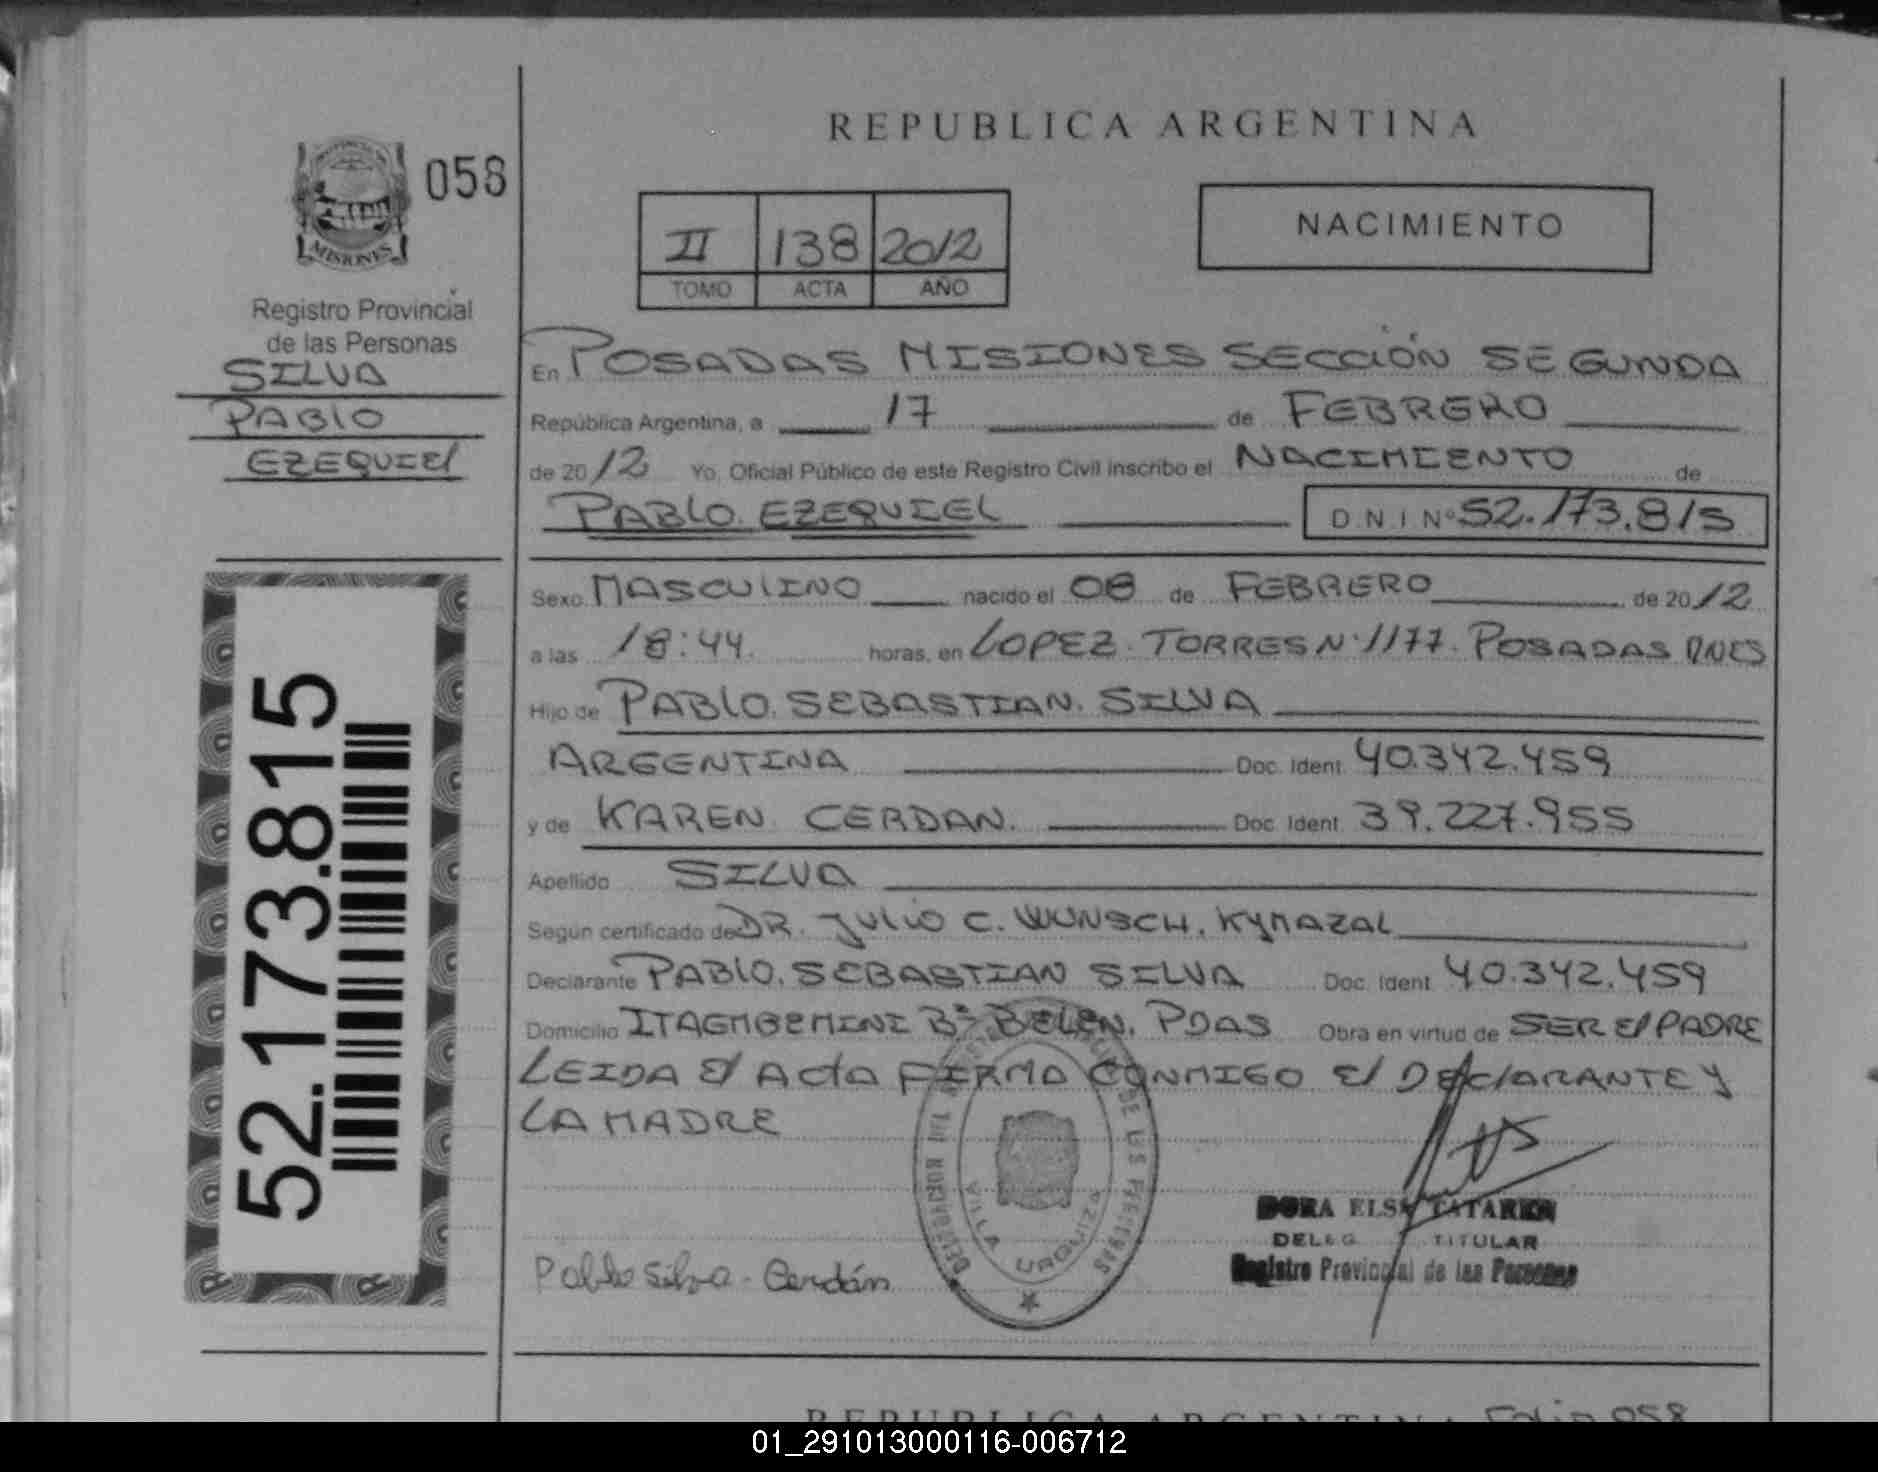 REPUBLICA ARGENTINA
058
MISIONES
Registro Provincial
de las Personas
SILVA
PABLO
EZEQUIEL
52.173.815
II 138 2012
TOMO ACTA AÑO
NACIMIENTO
En POSADAS MISIONES SECCIÓN SEGUNDA
República Argentina, a 17 de FEBRERO
de 2012 Yo, Oficial Público de este Registro Civil inscribo el NACIMIENTO de
PABLO EZEQUIEL D.N.I Nº 52.173.815
Sexo MASCULINO nacido el 08 de FEBRERO de 2012
a las 18:44. horas, en LOPEZ TORRES Nº 1177. POSADAS MNES
Hijo de PABLO SEBASTIAN SILVA
ARGENTINA Doc. Ident. 40.342.459
y de KAREN CERDAN. Doc. Ident. 39.227.955
Apellido SILVA
Según certificado de DR. JULIO C. WUNSCH, KYMAZAL
Declarante PABLO SEBASTIAN SILVA Doc. Ident. 40.342.459
Domicilio ITAEMBEMINI Bº BELEN, PDAS Obra en virtud de SER El PADRE
LEIDA El ActA FIRMA CONMIGO El DEClARANTE Y
LA MADRE
VILLA URQUIZA
DORA ELSA
DELEG TITULAR
Registro Provincial de las Personas
Pablo Silva - Cerdán
REPUBLICA ARGENTINA Folio 058
01_291013000116-006712